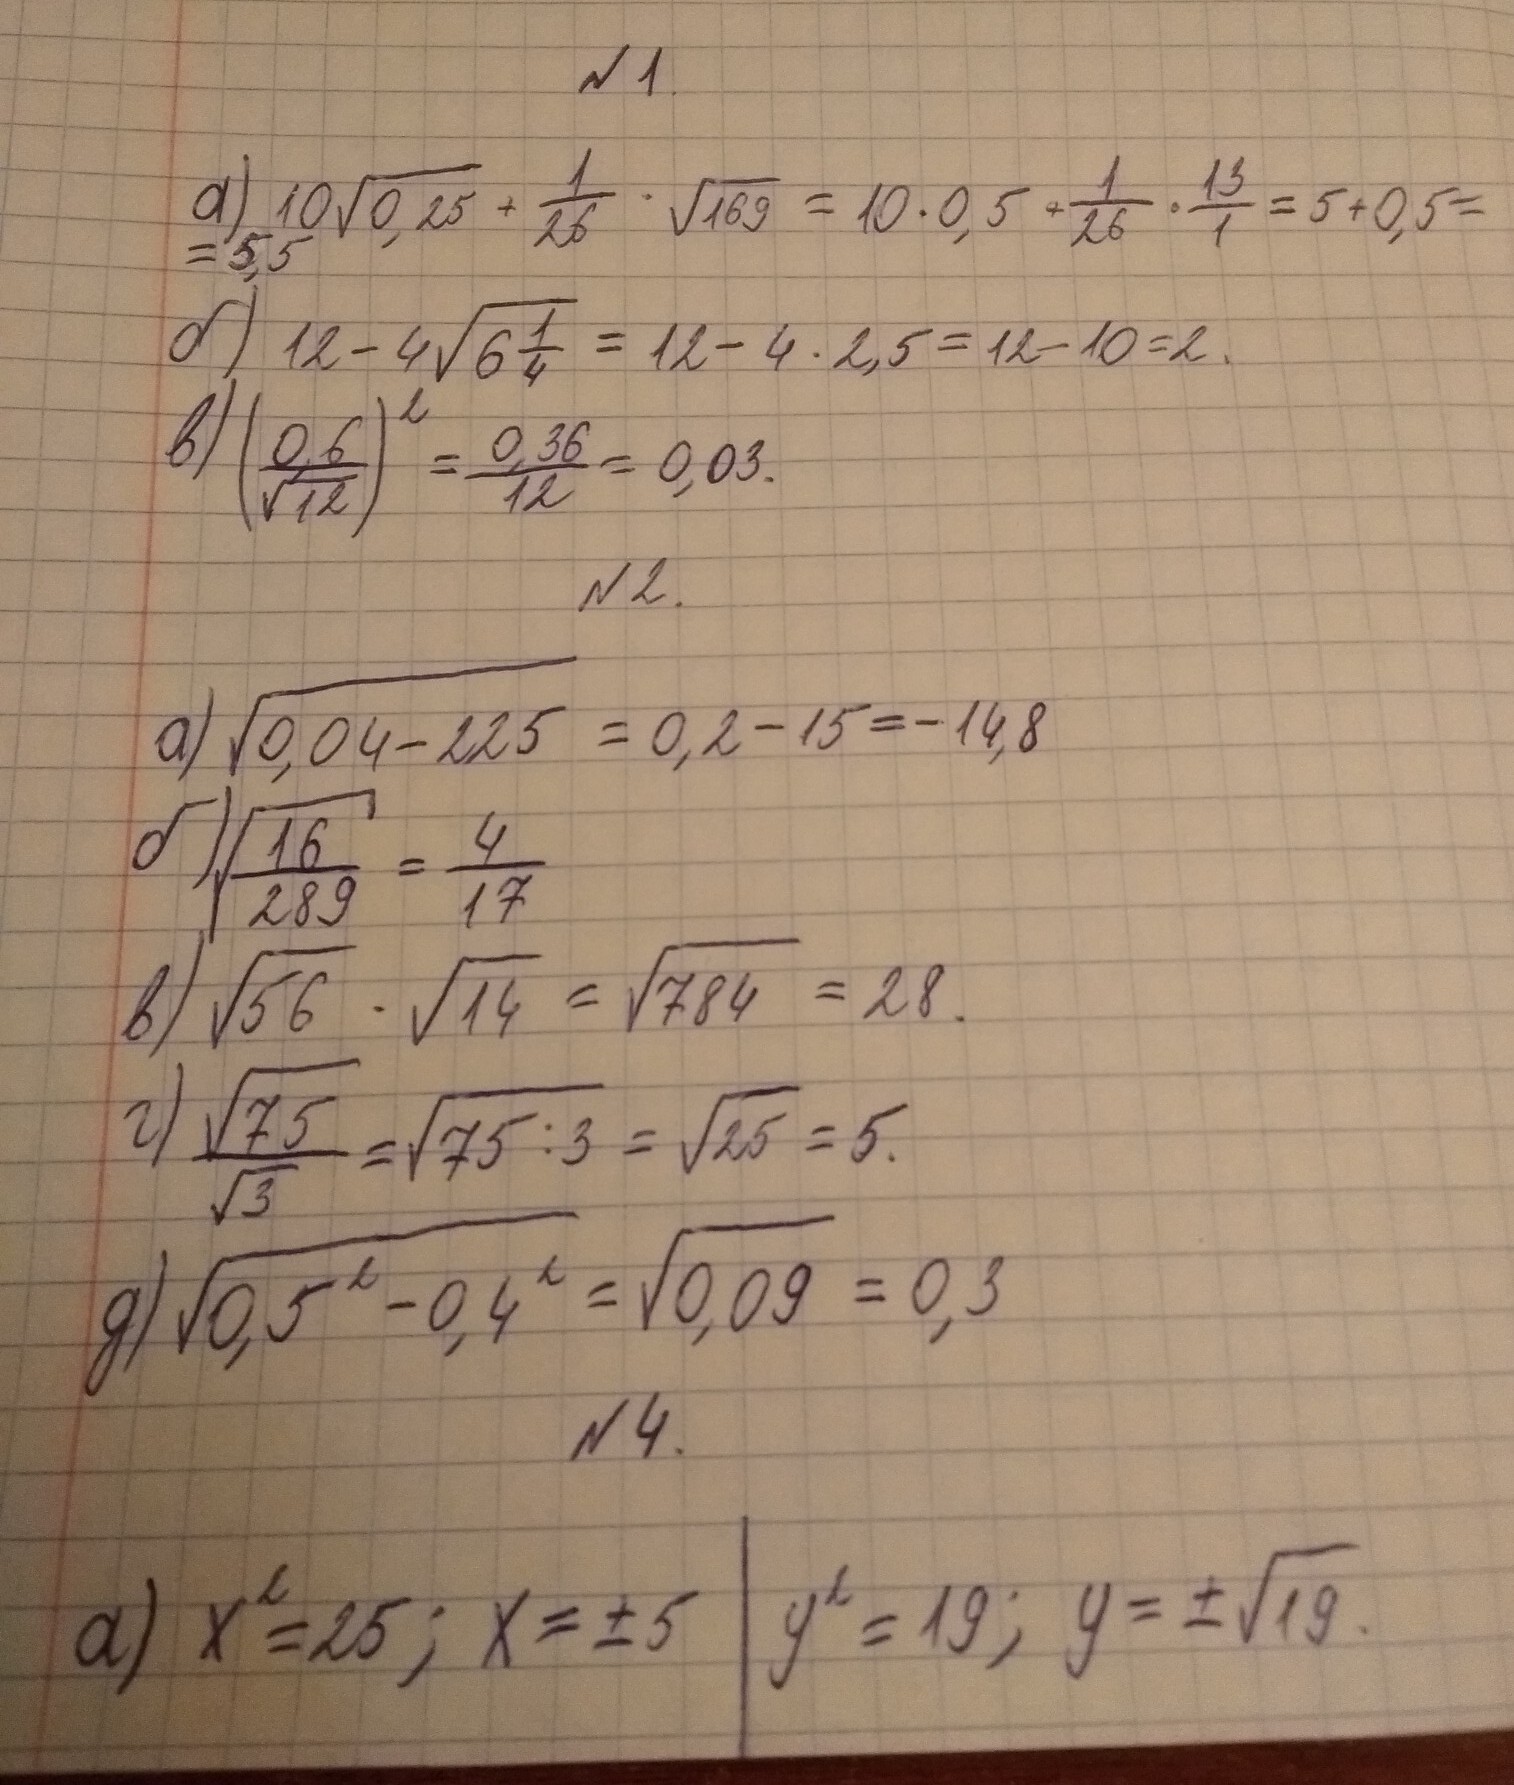 №1.
а) 10√0,25 + 1/26 · √169 = 10·0,5 + 1/26 · 13/1 = 5+0,5=
= 5,5
б) 12 − 4√6 1/4 = 12 − 4 · 2,5 = 12 − 10 = 2.
в) (0,6/√12)² = 0,36/12 = 0,03.
№2.
а) √0,04 − 225 = 0,2 − 15 = −14,8
б) √16/289 = 4/17
в) √56 · √14 = √784 = 28.
г) √75/√3 = √75:3 = √25 = 5.
д) √0,5² − 0,4² = √0,09 = 0,3
№4.
а) x² = 25; x = ±5 | y² = 19; y = ±√19.